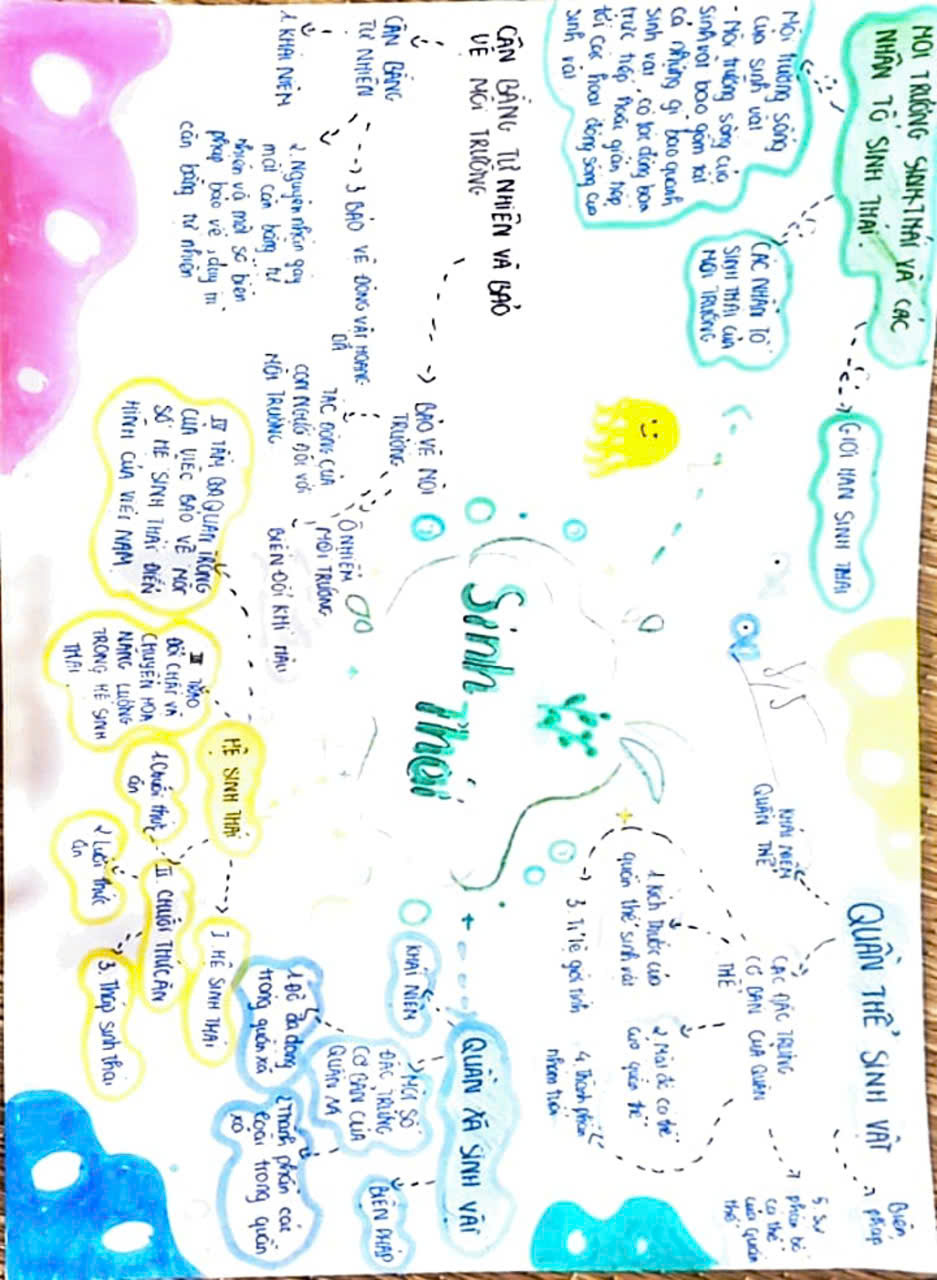 Sinh Thái
MÔI TRƯỜNG SINH THÁI VÀ CÁC
NHÂN TỐ SINH THÁI
Môi trường sống
của sinh vật
- Môi trường sống của
sinh vật bao gồm tất
cả những gì bao quanh
sinh vật, có tác động
trực tiếp hoặc gián tiếp
tới các hoạt động sống của
sinh vật
CÁC NHÂN TỐ
SINH THÁI CỦA
MÔI TRƯỜNG
GIỚI HẠN SINH THÁI
QUẦN THỂ SINH VẬT
KHÁI NIỆM
QUẦN THỂ
CÁC ĐẶC TRƯNG
CƠ BẢN CỦA QUẦN
THỂ
1. Kích thước của
quần thể sinh vật
2. Mật độ cá thể
của quần thể
3. Tỉ lệ giới tính
4. Thành phần
nhóm tuổi
5. Sự
phân bố
cá thể
của quần
thể
Biện
pháp
QUẦN XÃ SINH VẬT
KHÁI NIỆM
MỘT SỐ
ĐẶC TRƯNG
CƠ BẢN CỦA
QUẦN XÃ
1. Độ đa dạng
trong quần xã
2. Thành phần các
loài trong quần
xã
BIỆN PHÁP
HỆ SINH THÁI
I. HỆ SINH THÁI
II. CHUỖI THỨC ĂN
1. Chuỗi thức
ăn
2. Lưới thức
ăn
3. Tháp sinh thái
III TRAO
ĐỔI CHẤT VÀ
CHUYỂN HÓA
NĂNG LƯỢNG
TRONG HỆ SINH
THÁI
IV TẦM QUAN TRỌNG
CỦA VIỆC BẢO VỆ MỘT
SỐ HỆ SINH THÁI ĐIỂN
HÌNH CỦA VIỆT NAM
CÂN BẰNG TỰ NHIÊN VÀ BẢO
VỆ MÔI TRƯỜNG
CÂN BẰNG
TỰ NHIÊN
1. KHÁI NIỆM
2. Nguyên nhân gây
mất cân bằng tự
nhiên và một số biện
pháp bảo vệ, duy trì
cân bằng tự nhiên
3 BẢO VỆ ĐỘNG VẬT HOANG
DÃ
BẢO VỆ MÔI
TRƯỜNG
TÁC ĐỘNG CỦA
CON NGƯỜI ĐỐI VỚI
MÔI TRƯỜNG
Ô NHIỄM
MÔI TRƯỜNG
BIẾN ĐỔI KHÍ HẬU